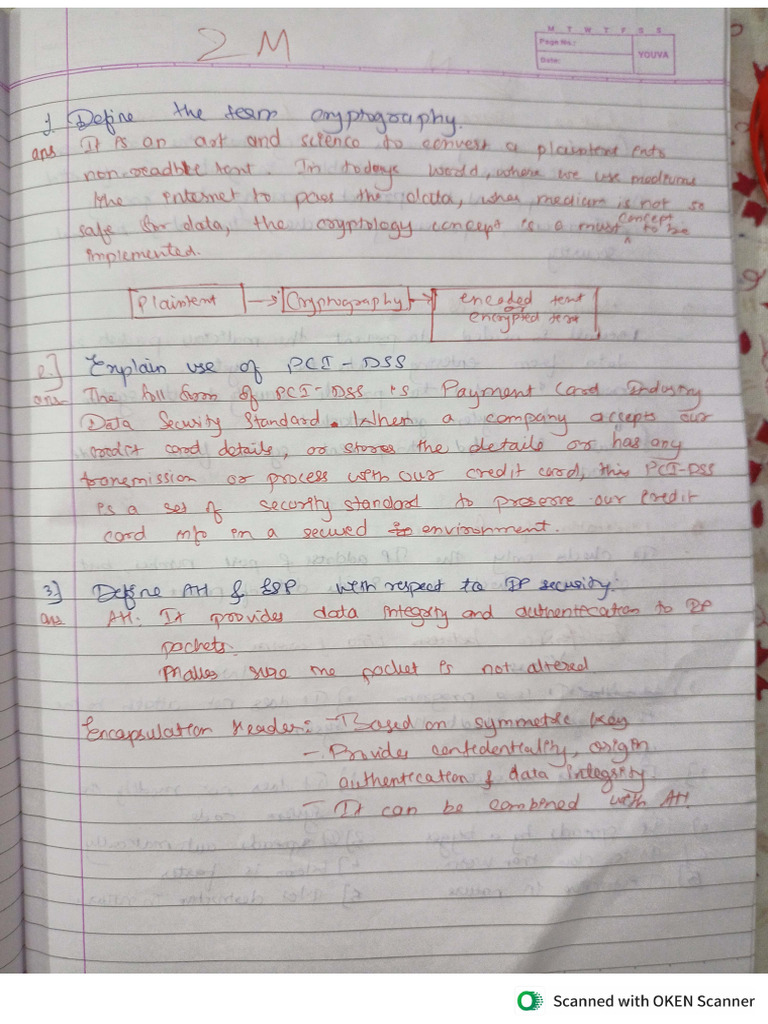 2 M
M T W T F S S
Page No.:
Date:
YOUVA
1. Define the team cryptography.
ans It is an art and science to convert a plaintent into
non readble tent. In todays world, where we use mediums
like internet to pass the data, whos medium is not so
safe for data, the cryptology concept is a must concept to be
implemented.
Plaintent → Cryptography → encoded tent
or
encrypted tent
2.] Explain use of PCI-DSS
ans The full form of PCI-DSS is Payment Card Industry
Data Security Standard. When a company accepts our
credit card details, or stores the details or has any
transmission or process with our credit card, this PCI-DSS
is a set of security standard to preserve our credit
card info in a secured environment.
3] Define AH & ESP with respect to IP security.
ans AH: It provides data integrity and authentication to IP
packets.
Makes sure the packet is not altered
Encapsulation Header: - Based on symmetric key
- Provides confidentiality, origin
authentication & data integrity
- It can be combined with AH.
Scanned with OKEN Scanner